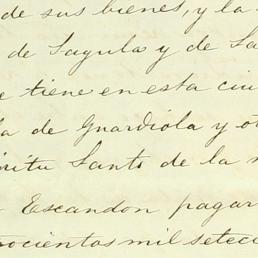 de sus bienes, y la
de Sayula y de Sa
e tiene en esta ciu
la de Guardiola y ot
íritu Santo de la m
Escandon pagar
trocientos mil seteci